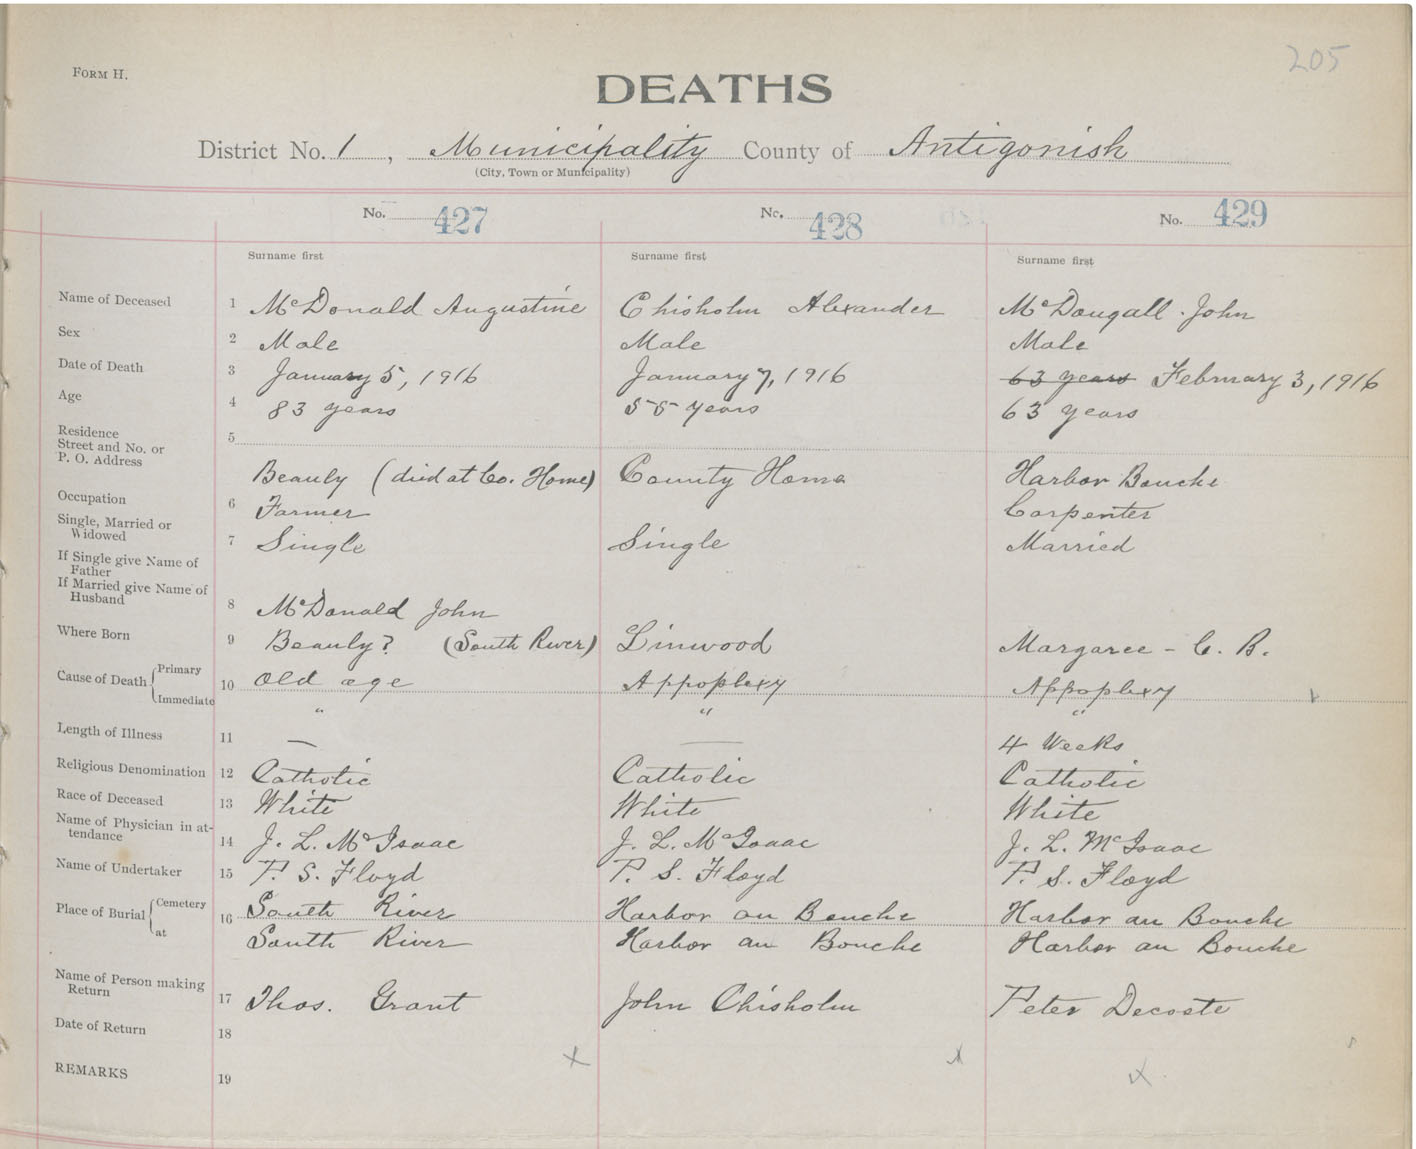 205
FORM H.
DEATHS
District No. 1, Municipality County of Antigonish
(City, Town or Municipality)
No. 427 No. 428 No. 429
Surname first Surname first Surname first
Name of Deceased 1 McDonald Augustine Chisholm Alexander McDougall John
Sex 2 Male Male Male
Date of Death 3 January 5, 1916 January 7, 1916 63 years February 3, 1916
Age 4 83 years 55 years 63 years
Residence
Street and No. or 5
P. O. Address
Beauly (died at Co. Home) County Home Harbor Bouche
Occupation 6 Farmer Carpenter
Single, Married or
Widowed 7 Single Single Married
If Single give Name of
Father
If Married give Name of
Husband 8 McDonald John
Where Born 9 Beauly? (South River) Linwood Margaree - C. B.
Cause of Death Primary 10 Old age Appoplexy Appoplexy
Immediate " " "
Length of Illness 11 — — 4 Weeks
Religious Denomination 12 Catholic Catholic Catholic
Race of Deceased 13 White White White
Name of Physician in at-
tendance 14 J. L. McIsaac J. L. McIsaac J. L. McIsaac
Name of Undertaker 15 T. S. Floyd T. S. Floyd T. S. Floyd
Place of Burial Cemetery 16 South River Harbor au Bouche Harbor au Bouche
at South River Harbor au Bouche Harbor au Bouche
Name of Person making
Return 17 Thos. Grant John Chisholm Peter Decoste
Date of Return 18
REMARKS 19 x x x